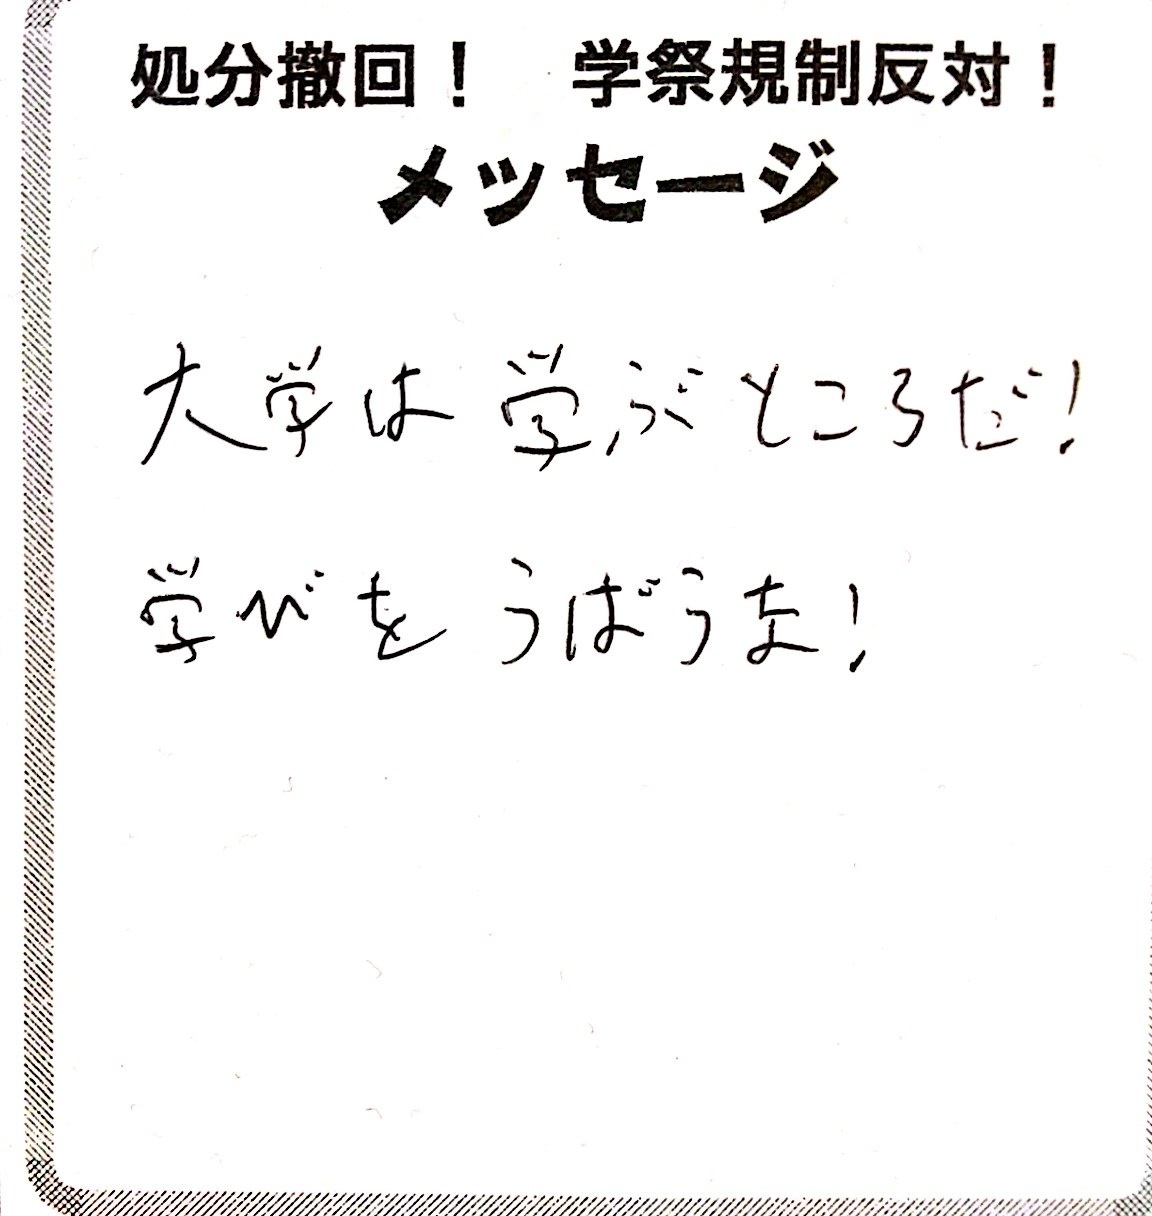 処分撤回！　学祭規制反対！
メッセージ
大学は学ぶところだ！
学びをうばうな！